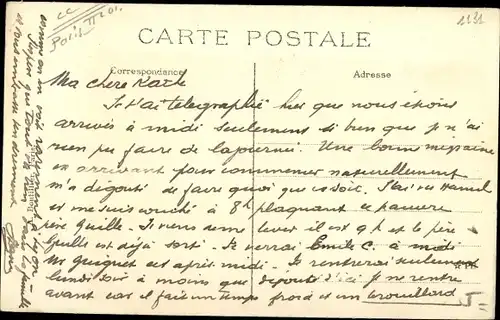 1131
CARTE POSTALE
Correspondance
Adresse
Ma chère Kate
Je t'ai télégraphié hier que nous étions
arrivés à midi seulement si bien que je n'ai
rien pu faire de la journée. Une bonne migraine
en arrivant pour commencer naturellement
m'a dégouté de faire quoi que ce soit. J'ai vu
et me suis couché à 8h plaquant ce pauvre
père Guille. Je viens de me lever il est 9 h et le père
Guille est déjà sorti. Je verrai Emile C. à midi
M Guignet cet après midi. Je rentrerai seulement
lundi soir à moins que dégouté d'ici je ne rentre
avant car il fait un temps froid et un brouillard
comme on en voit à Lyon
que tout va bien dans la famille
et vous embrasse